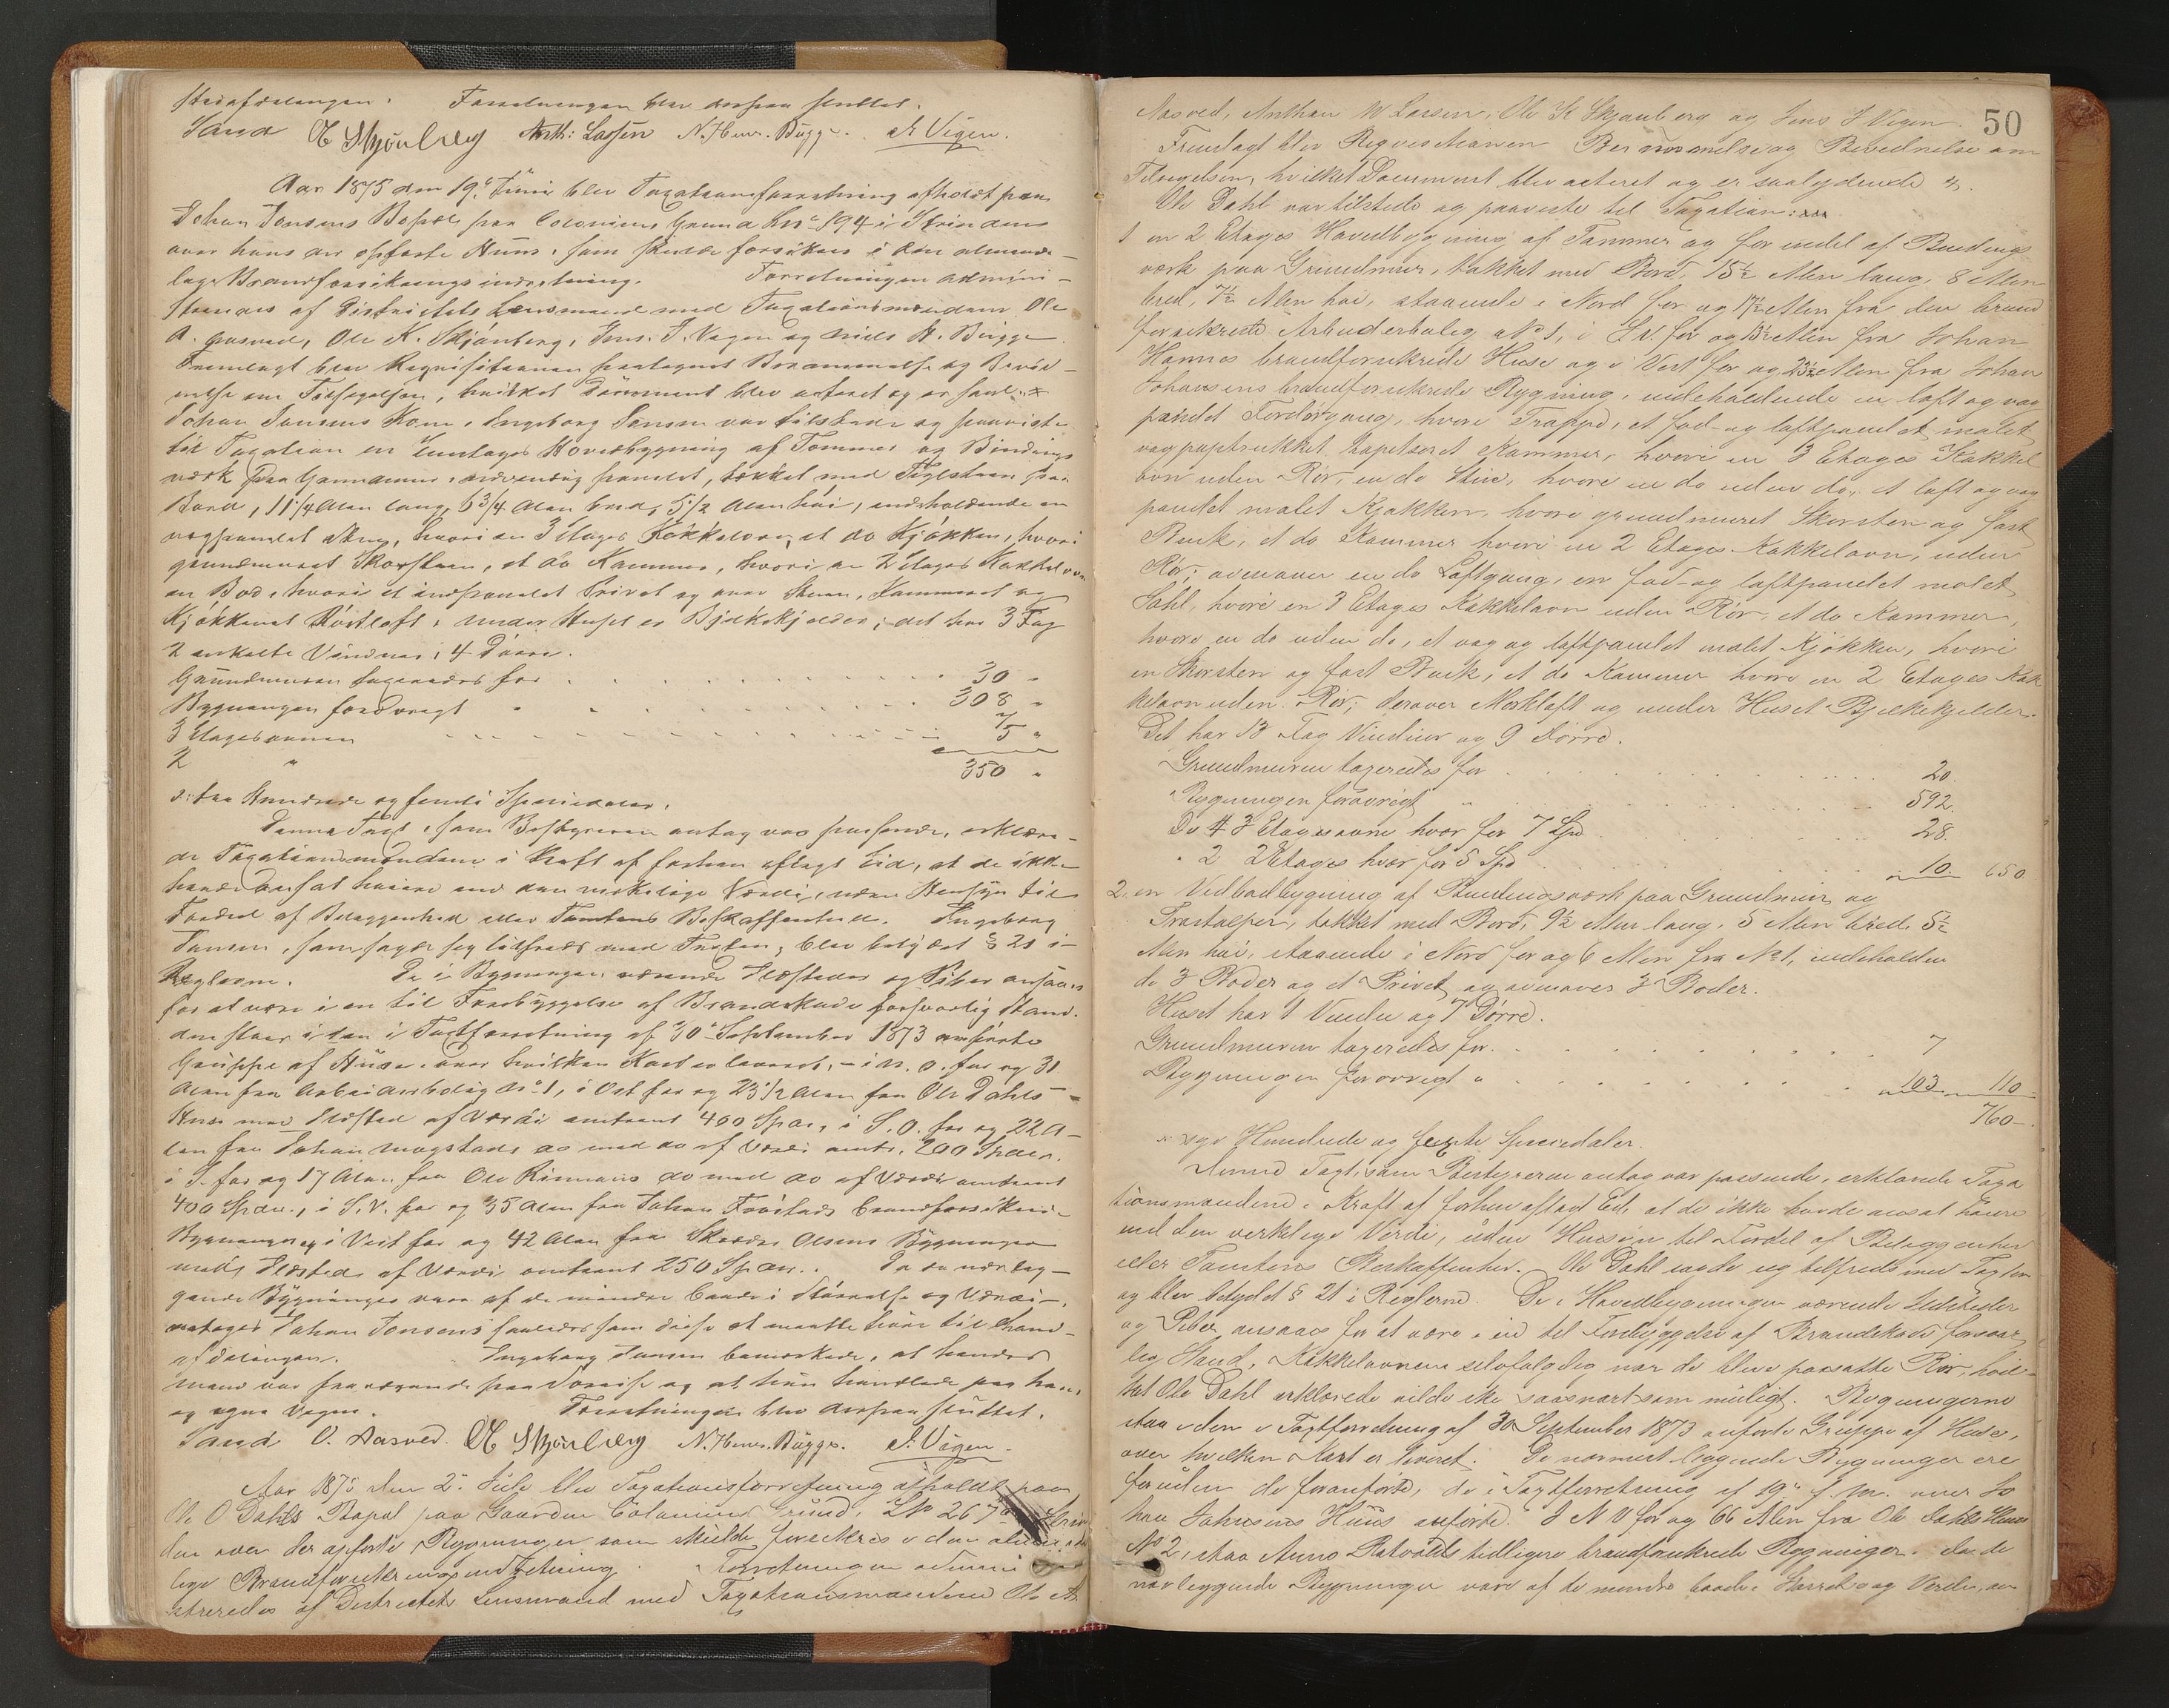 Forretningen blev derpaa sluttet.
Sand O K Skjønberg Anth: Lassen N. Henr. Bügge. J. Vigen.
Aar 1875 den 19de Juni blev Taxationsforretning afholdt paa
Johan Jensens Bopæl paa Coloniens Grund i Strinden
over hans der opførte Huus, som skulde forsikres i den alminde-
lige Brandforsikringsindretning. Forretningen admini-
streredes af Districtets Lensmand med Taxationsmændene Ole
A. Aasved, Ole K. Skjønberg, Jens J. Vigen og Niels H. Bügge.
Fremlagt blev Reqvisitionen paategnet Berammelse og Bevid-
nelse om Tilsigelsen, hvilket Document blev acteret og er saal.
Johan Jensens Kone, Ingeborg Jensen var tilstede og paaviste
til Taxation en Eenetages Hovedbygning af Tømmer og Bindings
værk paa Grundmuur, udvendig panelet, tækket med Teglsteen paa
Bord, 11 1/4 Alen lang, 6 3/4 Alen bred, 5 1/2 Alen høi, indeholdende en
vægpanelet Stue, hvori en 3 Etages Kakkelovn, et do Kjøkken, hvori
grundmuret Skorsteen, et do Kammer, hvori en 2 Etages Kakkelovn
en Bod, hvori et indpanelet Privet og over Stuen, Kammeret og
Kjøkkenet Röstloft, under Huset er Bjelkekjelder; det har 3 Fag
2 enkelte Vinduer, 4 Døre.
Grundmuren taxeredes for 30 "
Bygningen forøvrigt " 308 "
3 Etagesovnen 7
2 " 5 "
350 "
er tre Hundrede og femti Speciedaler.
Denne Taxt, som Bestyreren antog var passende, erklære-
de Taxationsmændene i Kraft af forhen aflagt Eid, at de ikke
havde ansat høiere end den virkelige Værdi, uden Hensyn til
Fordel af Beliggenhed eller Tomtens Beskaffenhed. Ingeborg
Jensen, som sagde sig tilfreds med Taxten, blev betydet § 21 i
Reglerne. De i Bygningen værende Ildsteder og Piber ansaaes
for at være i en til Forebyggelse af Brandskade forsvarlig Stand.
den staar i den i Taxtforretning af 30te September 1873 anførte
Gruppe af Huse, over hvilken Kart er leveret, - i N. O. for og 31
Alen fra Arbeiderbolig No 1, i Øst for og 23 1/2 Alen fra Ole Dahls
Huus med Ildsted af Værdi omtrent 400 Spdr., i S. O. for og 22 A-
len fra Johan Mogstads do med do af Værdi omtr. 200 Spdr.
i S. for og 17 Alen fra Ole Rinnans do med do af Værdi omtrent
400 Spdr., i S. V. for og 35 Alen fra Johan brandforsikrede
Bygninger og i Vest for og 42 Alen fra Skrædder Olsens Bygninger
med Ildsted af Værdi omtrent 250 Spdr. Da de nærlig-
gende Bygninger vare af de mindre baade i Størrelse og Værdi,
antoges Johan Jensens saaledes som disse at maatte høre til Land-
afdelingen. Ingeborg Jensen bemærkede, at hendes
Mand var fraværende paa Reise og at hun handlede paa hans
og egne Vegne. Forretningen blev derpaa sluttet.
Sand O. Aasved. O K Skjønberg N. Henr. Bügge. J. Vigen.
Aar 1875 den 2den Juli blev Taxationsforretning afholdt paa
Ole O Dahls Bopæl paa Gaarden Coloniens Grund, i Strin
den over der opførte Bygninger som skulde forsikres i den alminde
lige Brandforsikringsindretning. Forretningen admini
streredes af Districtets Lensmand med Taxationsmændene Ole A.
50
Aasved, Anthon M Lassen, Ole K Skjønberg og Jens J Vigen.
Fremlagt blev Reqvisitionen Berammelse og Bevidnelse om
Tilsigelsen, hvilket Document blev acteret og er saalydende
Ole Dahl var tilstede og paaviste til Taxation:
1 en 2 Etages Hovedbygning af Tømmer og for endel af Bindings
værk paa Grundmur, tækket med Bord, 15 1/2 Alen lang, 8 Alen
bred, 7 1/2 Alen høi, staaende i Nord for og 17 1/2 Alen fra den brand
forsikrede Arbeiderbolig No 1, i S.V. for og 13 1/2 Alen fra Johan
Hannes brandforsikrede Huse og i Vest for og 23 1/2 Alen fra Johan
Johansens brandforsikrede Bygning, indeholdende en loft og væg
panelet Fordørgang, hvori Trappe, et fod- og loftpanelet malet
vægpaptrukket, tapetseret Kammer, hvori en 3 Etages Kakkel
ovn uden Rør, en do Stue, hvori en do uden do, et loft og væg
panelet malet Kjøkken, hvori grundmuret Skorsten og fast
Bænk, et do Kammer hvori en 2 Etages Kakkelovn, uden
Rør; ovenover en do Loftgang, en fod- og loftpanelet malet
Sahl, hvori en 3 Etages Kakkelovn uden Rør, et do Kammer,
hvori en do uden do, et væg og loftpanelet malet Kjøkken, hvori
en Skorsten og fast Bænk, et do Kammer hvori en 2 Etages Kak
kelovn uden Rør; derover Mørkloft og under Huset Bjelkekjelder.
Det har 13 Fag Vinduer og 9 Dørre.
Grundmuren taxeredes for 20.
Bygningen forøvrigt " 592.
De 4 3 Etagesovne hver for 7 Spd 28.
" 2 2 Etages hver for 5 Spd " 10. 650
2, en Vedbodbygning af Bindingsværk paa Grundmur og
Træstolper, tækket med Bord, 9 1/2 Alen lang, 5 Alen bred, 5 1/2
Alen høi, staaende i Nord for og 6 Alen fra No 1, indeholden
de 3 Boder og et Privet og ovenover 3 Boder.
Huset har 1 Vindu og 7 Dørre.
Grundmuren taxeredes for 7
Bygningen forøvrigt " 103 110
760
syv Hundrede og sexti Speciedaler.
Denne Taxt, som Bestyreren antog var passende, erklærede Taxa
tionsmændene i Kraft af forhen aflagt Ed, at de ikke havde ansat høiere
end den verkelige Værdi, uden Hensyn til Fordel af Beliggenhed
eller Tomtens Beskaffenhed. Ole Dahl sagde sig tilfreds med Taxten
og blev betydet § 21 i Reglerne. De i Hovedbygningen værende Ildsteder
og Piber ansaaes for at være i en til Forebyggelse af Brandskade forsvar
lig Stand, Kakkelovnene selvfølgelig naar de bleve paasatte Rør, hvil-
ket Ole Dahl erklærede vilde ske saasnart som muligt. Bygningerne
staa i den i Taxtforretning af 30 September 1873 anførte Gruppe af Huse,
over hvilken Kart er leveret. De nærmest liggende Bygninger ere
foruden de foranførte, de i Taxtforretning af 19de f. M. over Jo
han Johnsens Huus anførte. I N V for og 66 Alen fra Ole Dahls Huus
No 2, staa Arno Ratvolds tidligere brandforsikrede Bygninger. Da de
nærliggende Bygninger vare af de mindre baade i Størrelse og Værdi, an